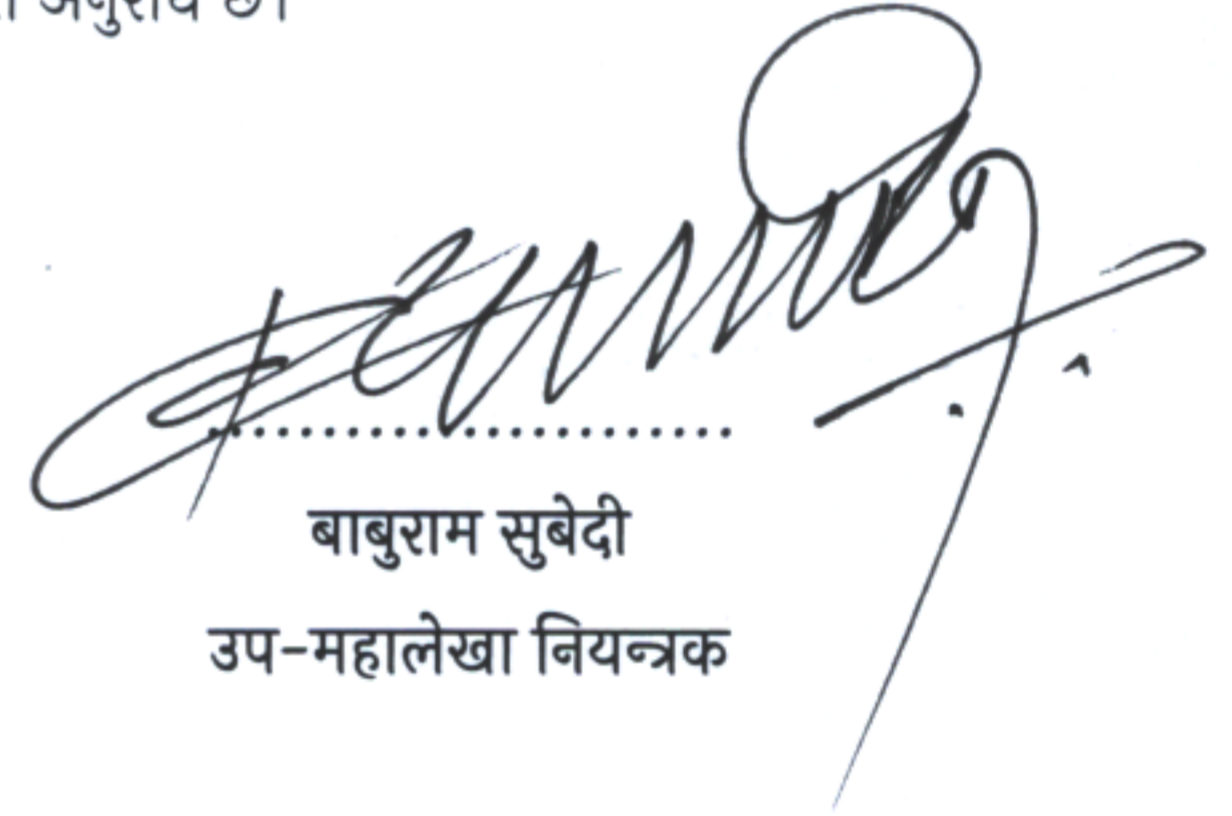 अनुरोध छ।
........................................
बाबुराम सुबेदी
उप-महालेखा नियन्त्रक